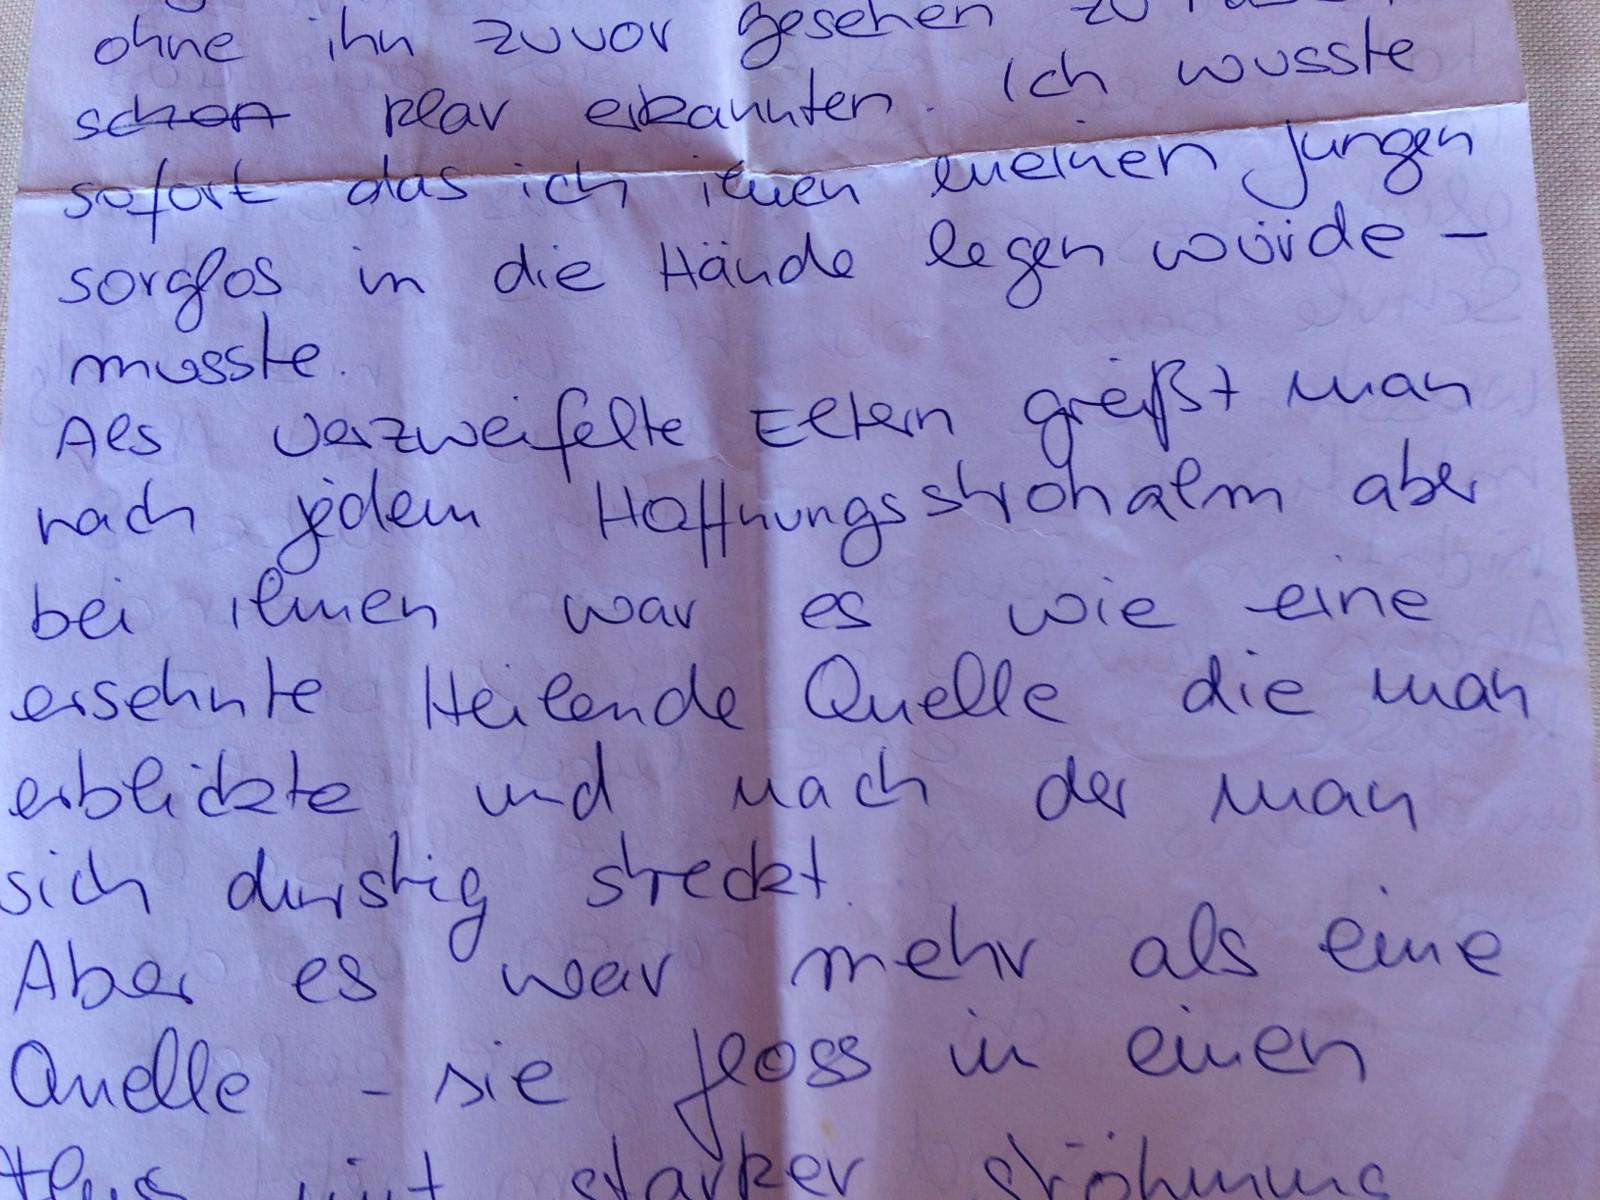 ohne ihn zuvor gesehen zu
schon klar erkannten. Ich wusste
sofort das ich ihnen meinen Jungen
sorglos in die Hände legen würde –
musste.
Als verzweifelte Eltern greißt man
nach jedem Hoffnungsstrohalm aber
bei ihnen war es wie eine
ersehnte Heilende Quelle die man
erblickte und nach der man
sich durstig streckt.
Aber es war mehr als eine
Quelle – sie floss in einen
Fluss mit starker Ströhmung